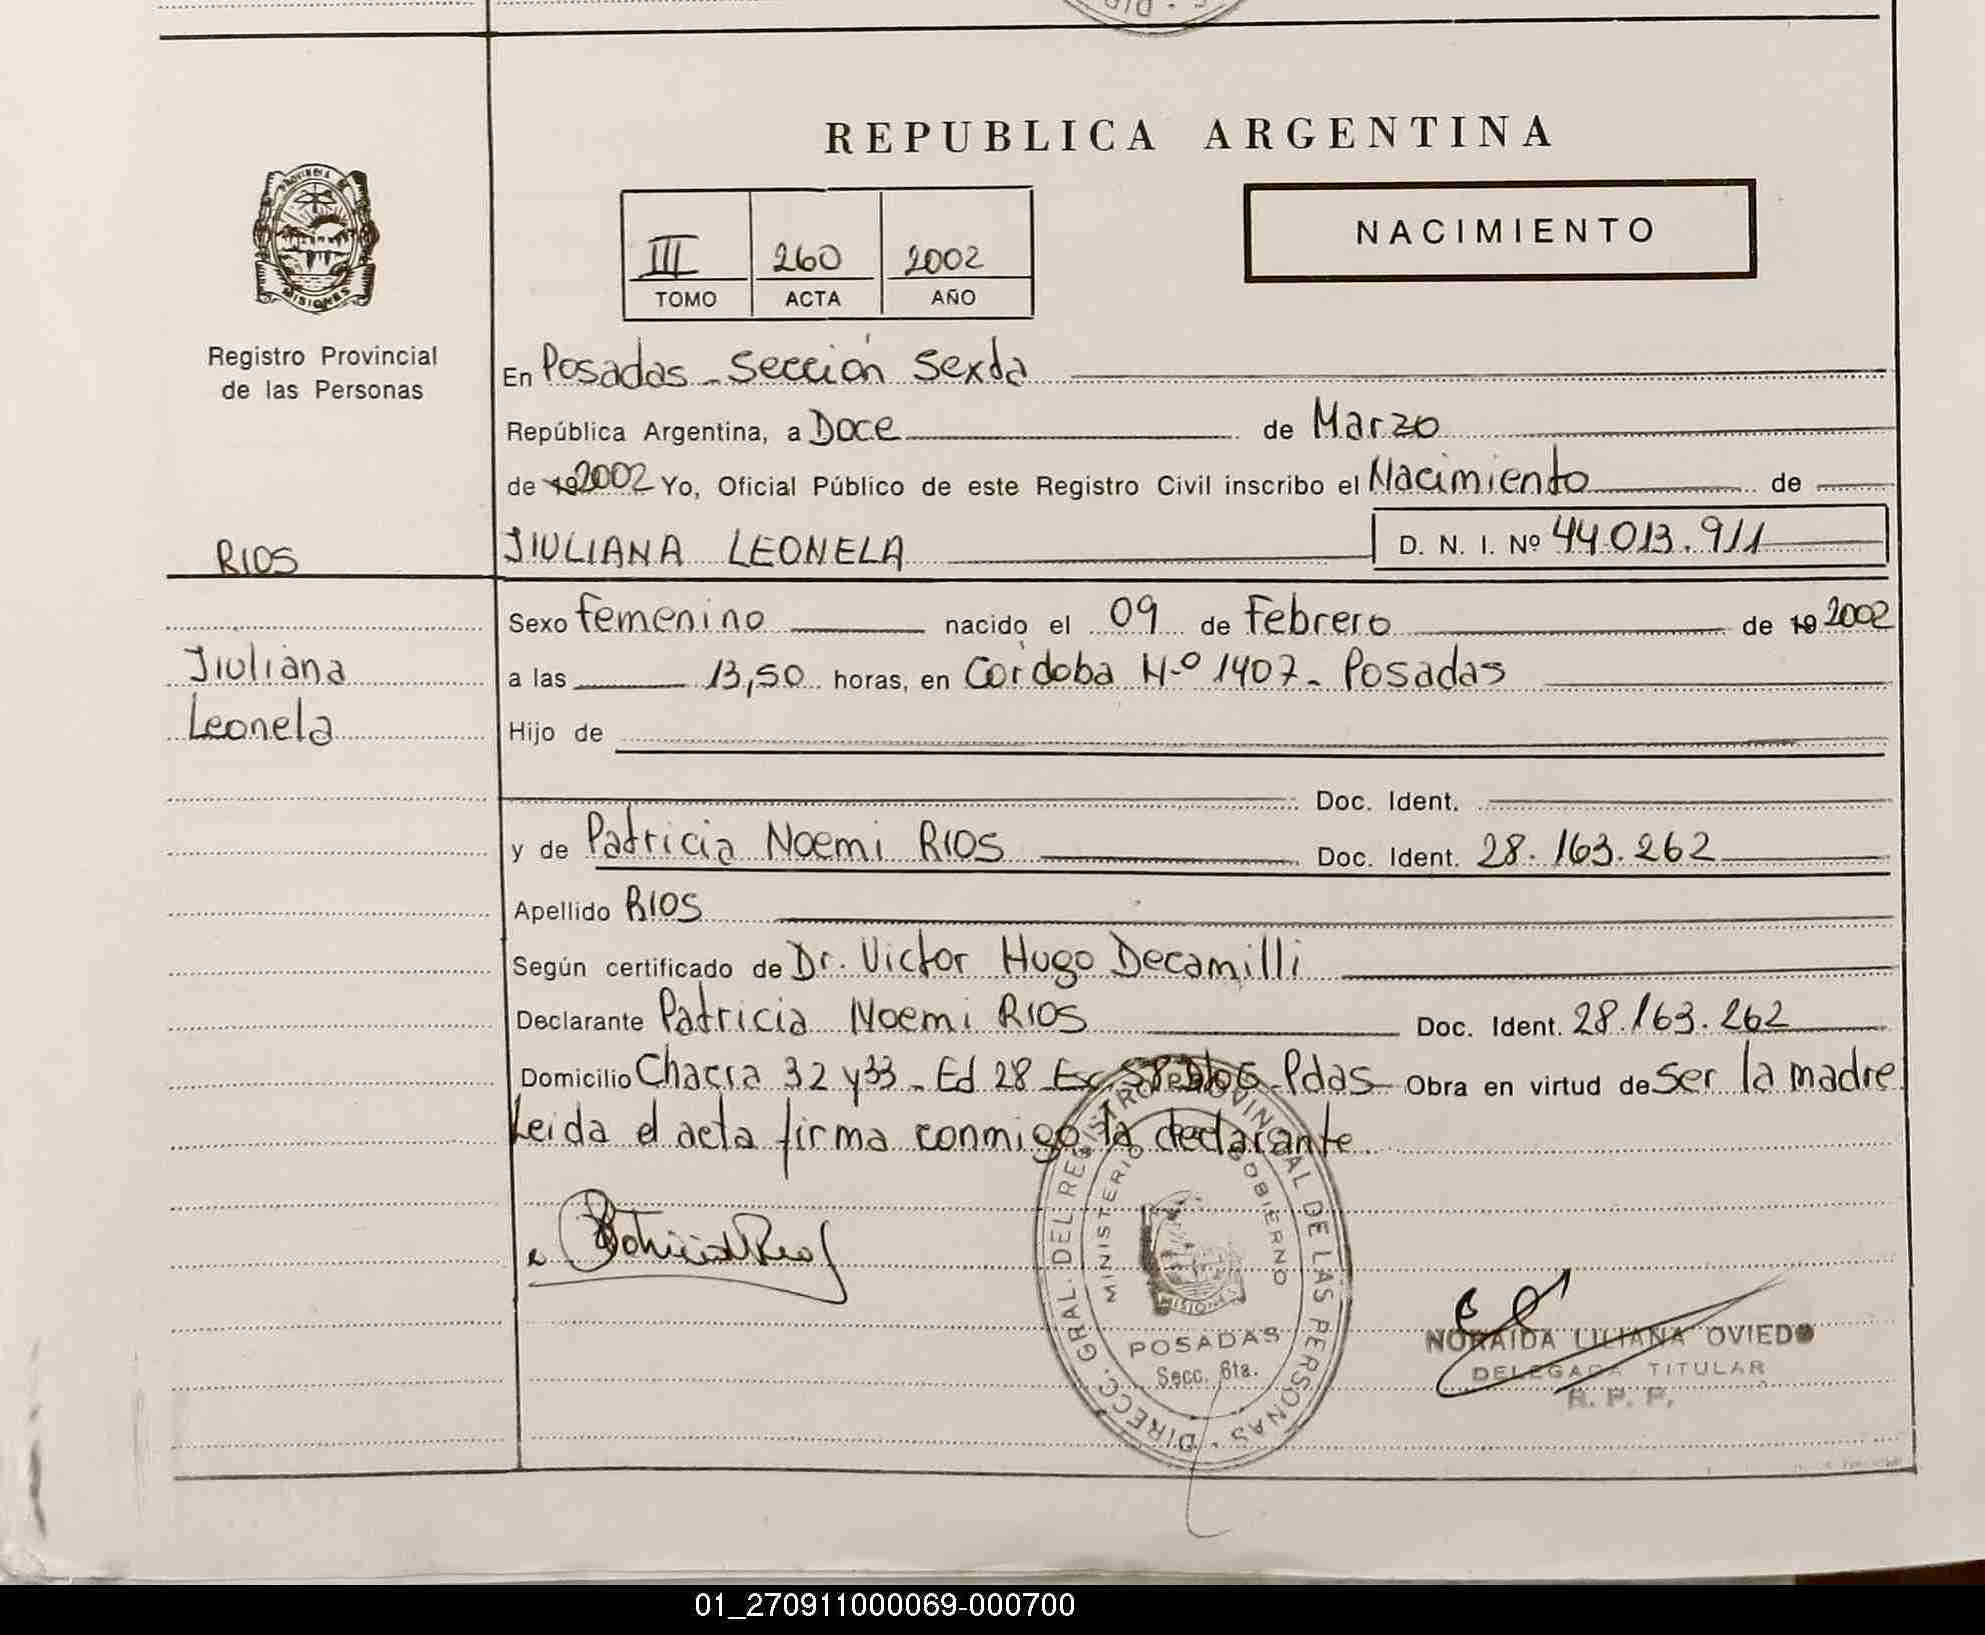 REPUBLICA ARGENTINA
PROVINCIA DE
MISIONES
Registro Provincial
de las Personas
III 260 2002
TOMO ACTA AÑO
NACIMIENTO
En Posadas - Sección Sexta
República Argentina, a Doce de Marzo
de 19 2002 Yo, Oficial Público de este Registro Civil inscribo el Nacimiento de
RIOS
JIULIANA LEONELA D. N. I. Nº 44.013.911
Sexo femenino nacido el 09 de Febrero de 19 2002
Jiuliana
a las 13,50 horas, en Córdoba N.º 1407 - Posadas
Leonela
Hijo de
Doc. Ident.
y de Patricia Noemi RIOS Doc. Ident. 28.163.262
Apellido RIOS
Según certificado de Dr. Victor Hugo Decamilli
Declarante Patricia Noemi RIOS Doc. Ident. 28.163.262
Domicilio Chacra 32 y 33 - Ed 28 Pdas Obra en virtud de Ser la madre
Leida el acta firma conmigo la declarante.
DIRECC. GRAL. DEL REGISTRO PROVINCIAL DE LAS PERSONAS
MINISTERIO GOBIERNO
MISIONES
POSADAS
Secc. 6ta.
NORAIDA LILIANA OVIEDO
DELEGADA TITULAR
R. P. P.
01_270911000069-000700